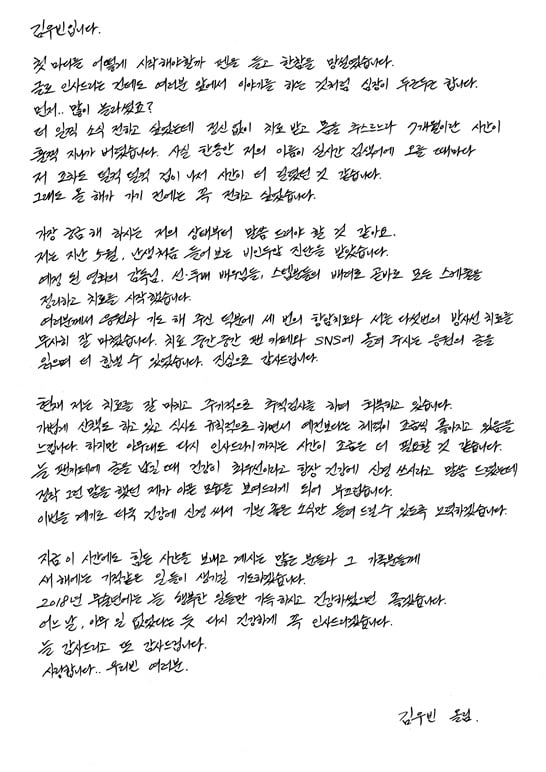 김우빈입니다.
첫 마디는 어떻게 시작해야할까 펜을 들고 한참을 망설였습니다.
글로 인사드리는 건데도 여러분 앞에서 이야기를 하는 것처럼 심장이 두근두근 합니다.
먼저.. 많이 놀라셨죠?
더 일찍 소식 전하고 싶었는데 정신없이 치료 받고 몸을 추스르느라 7개월이란 시간이
훌쩍 지나가 버렸습니다. 사실 한동안 저의 이름이 실시간 검색어에 오를 때마다
저 조차도 덜컥 덜컥 겁이 나서 시간이 더 길었던 것 같습니다.
그래도 올 해가 가기 전에는 꼭 전하고 싶었습니다.
가장 궁금해 하시는 저의 상태부터 말씀 드려야 할 것 같아요.
저는 지난 5월, 난생처음 들어 보는 비인두암 진단을 받았습니다.
예정 된 영화의 감독님, 선·후배 배우님들, 스텝분들의 배려로 곧바로 모든 스케줄을
정리하고 치료를 시작했습니다.
여러분께서 응원과 기도 해 주신 덕분에 세 번의 항암치료와 서른 다섯번의 방사선 치료를
무사히 잘 마쳤습니다. 치료 중간중간 팬 카페와 SNS에 올려 주시는 응원의 글을
읽으며 더 힘낼 수 있었습니다. 진심으로 감사드립니다.
현재 저는 치료를 잘 마치고 주기적으로 추적검사를 하며 회복하고 있습니다.
가볍게 산책도 하고 있고 식사도 규칙적으로 하면서 예전보다는 체력이 조금씩 좋아지고 있음을
느낍니다. 하지만 아무래도 다시 인사드리기까지는 시간이 조금은 더 필요할 것 같습니다.
늘 팬카페에 글을 남길 때 건강이 최우선이라고 항상 건강에 신경 쓰시라고 말씀 드렸는데
정작 그런 말을 했던 제가 아픈 모습을 보여드리게 되어 부끄럽습니다.
이번을 계기로 더욱 건강에 신경 써서 기분 좋은 소식만 들려 드릴 수 있도록 노력하겠습니다.
지금 이 시간에도 힘든 시간을 보내고 계시는 많은 분들과 그 가족분들께
새 해에는 기적같은 일들이 생기길 기도하겠습니다.
2018년 무술년에는 늘 행복한 일들만 가득하시고 건강하셨으면 좋겠습니다.
어느 날, 아무 일 없었다는 듯 다시 건강하게 꼭 인사드리겠습니다.
늘 감사드리고 또 감사드립니다.
사랑합니다.. 우리빈 여러분.
김우빈 올림.